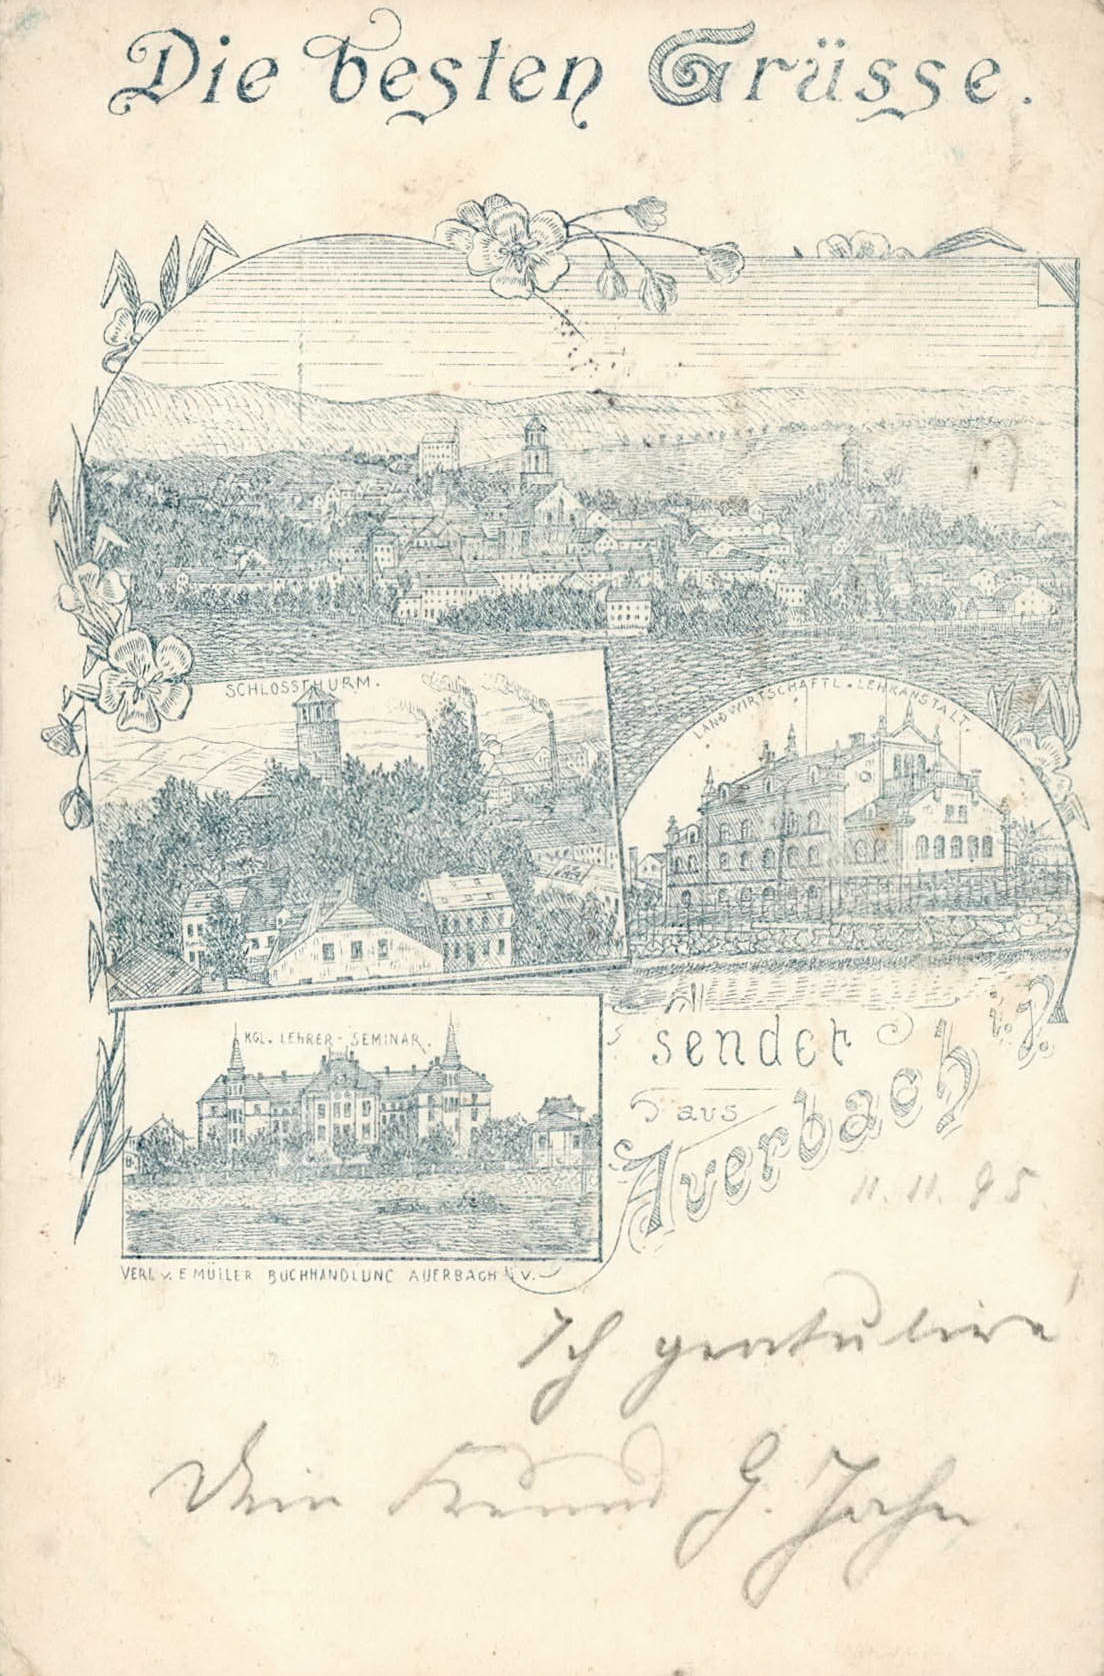 Die besten Grüsse.
SCHLOSSTHURM.
LANDWIRTSCHAFTL. LEHRANSTALT
KGL. LEHRER-SEMINAR.
sendet
aus
Auerbach i. V.
11.11.95
VERL. v. E MÜLLER BUCHHANDLUNG AUERBACH i. V.
Ich gratulire
Dein Freund G. Jahn